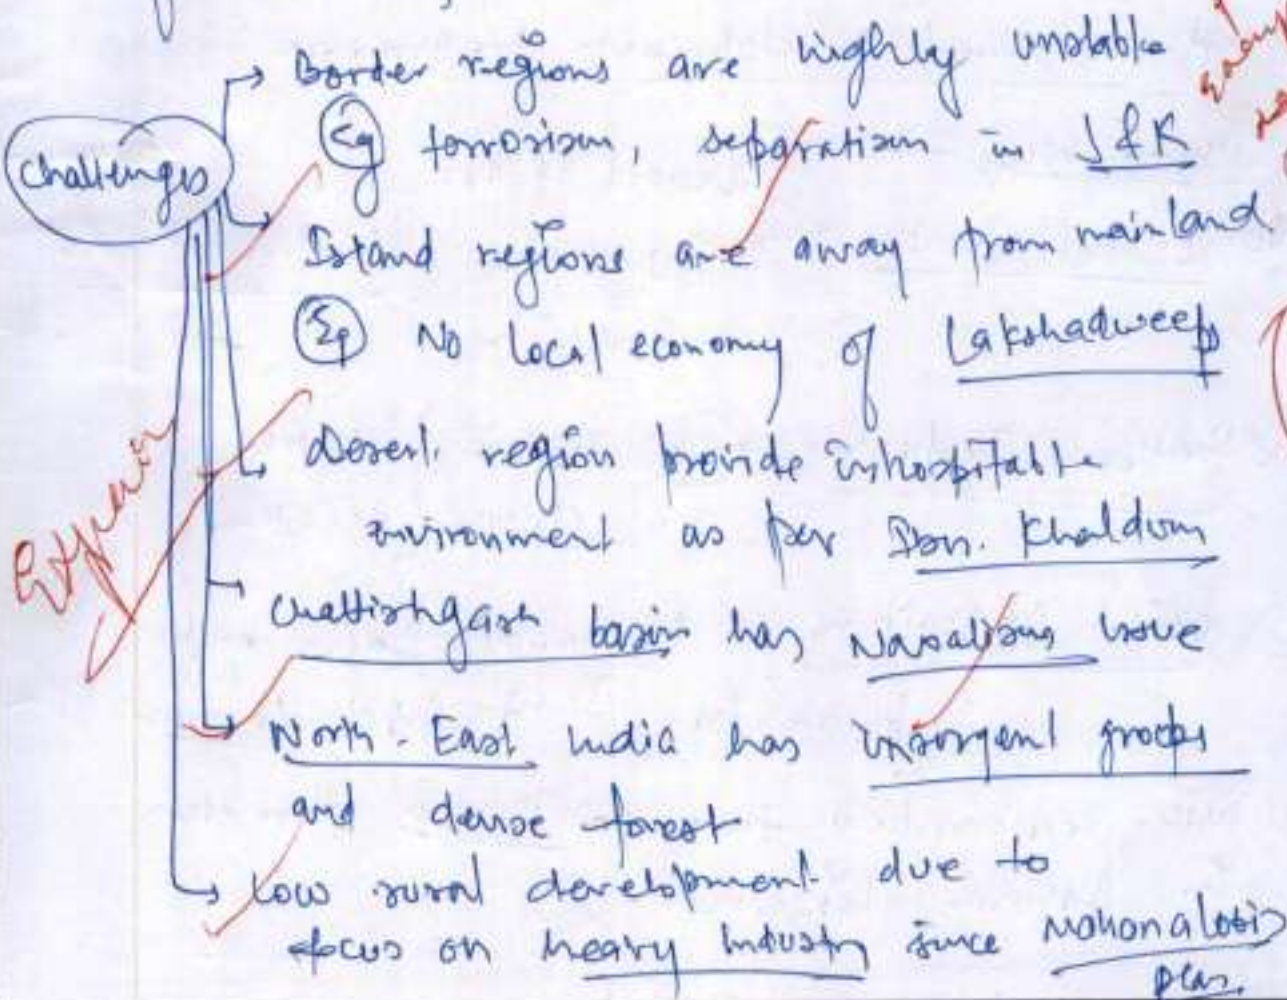 Border regions are highly unstable
Challenges
Eg terrorism, separatism in J&K
Island regions are away from mainland
Eg No local economy of Lakshadweep
Desert region provide inhospitable
environment as per Ibn. Khaldun
Chattishgarh basin has Naxalism issue
North-East India has insurgent groups
and dense forest
Low rural development due to
focus on heavy industry since Mahanalobis
plan.